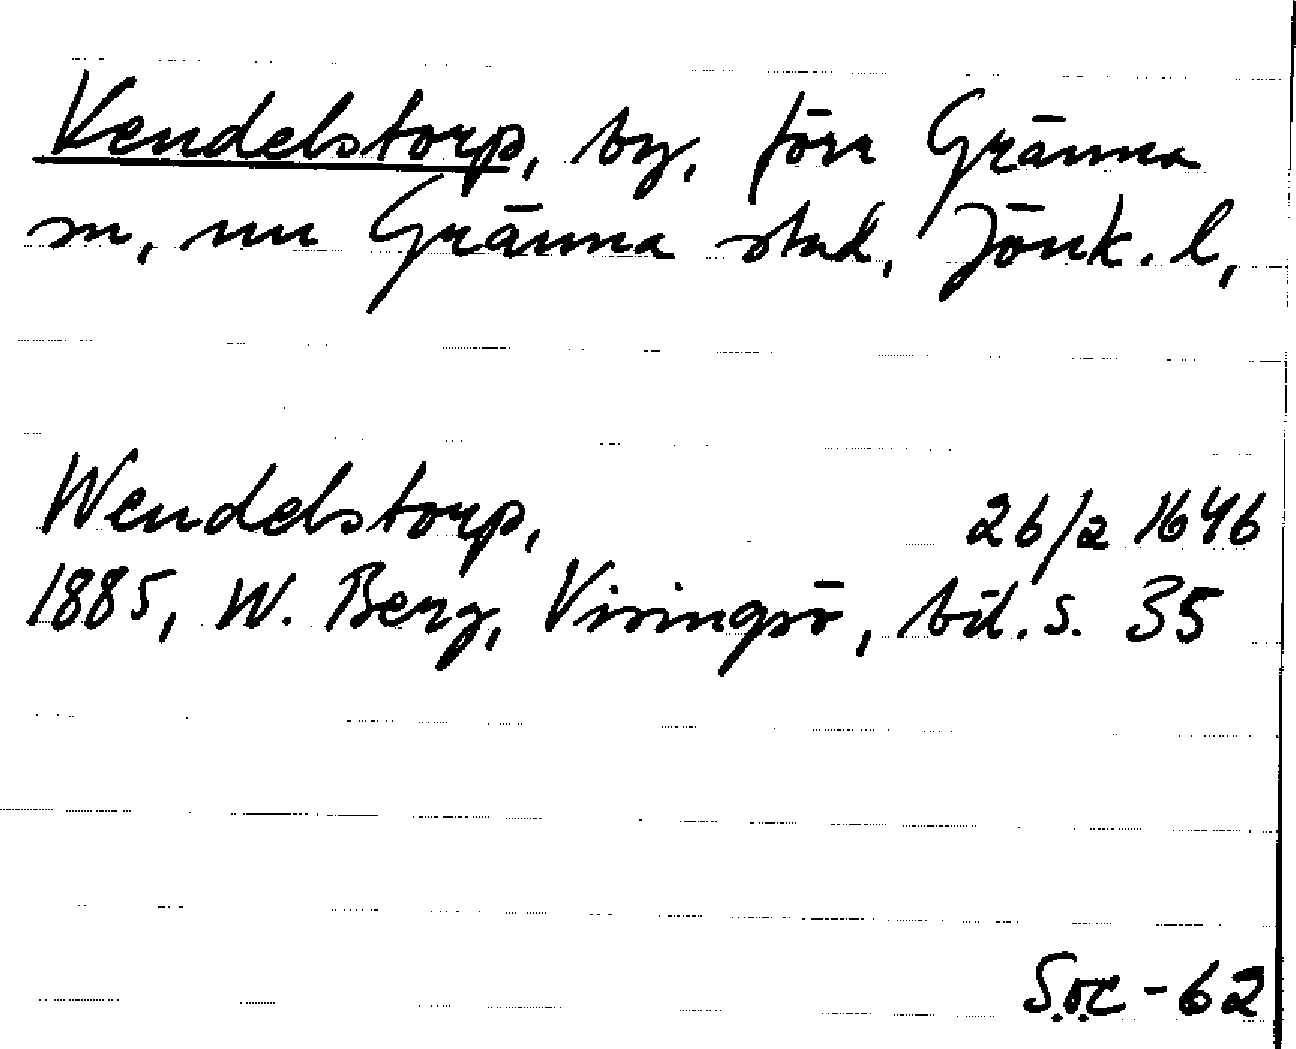 Vendelstorp, by, förr Gränna
sn, nu Gränna stad, Jönk. l,
Wendelstorp, 26/2 1646
1885, W. Berg, Visingsö, bil. s. 35
S.ö.C - 62